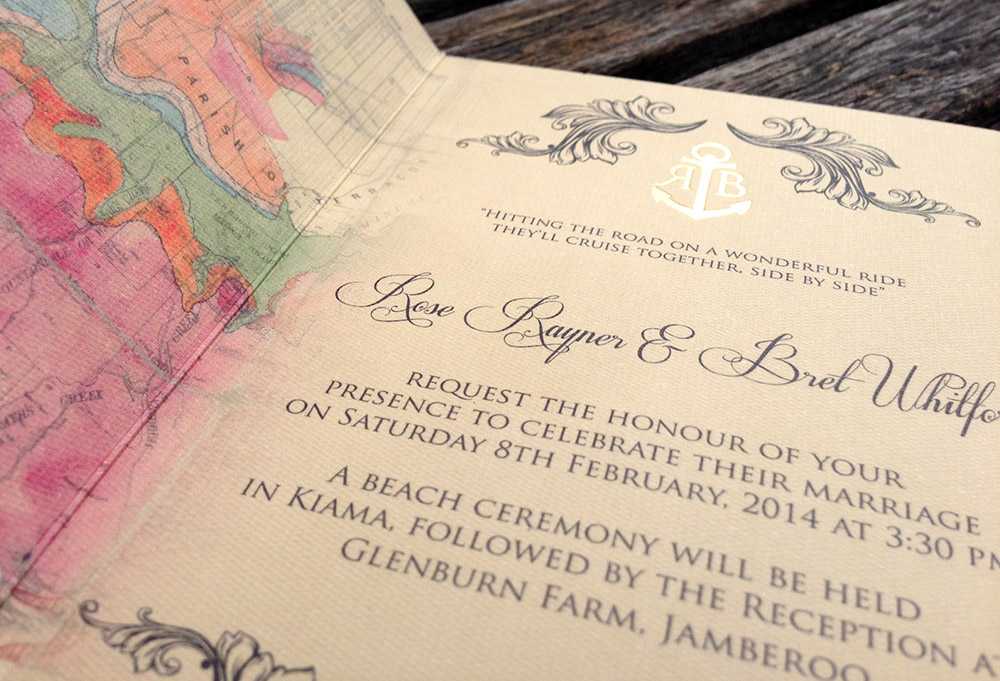 PARISH
CREEK
R B
"HITTING THE ROAD ON A WONDERFUL RIDE
THEY'LL CRUISE TOGETHER, SIDE BY SIDE"
Rose Rayner & Bret Whitfo
REQUEST THE HONOUR OF YOUR
PRESENCE TO CELEBRATE THEIR MARRIAGE
ON SATURDAY 8TH FEBRUARY, 2014 AT 3:30 PM
A BEACH CEREMONY WILL BE HELD
IN KIAMA, FOLLOWED BY THE RECEPTION AT
GLENBURN FARM, JAMBEROO